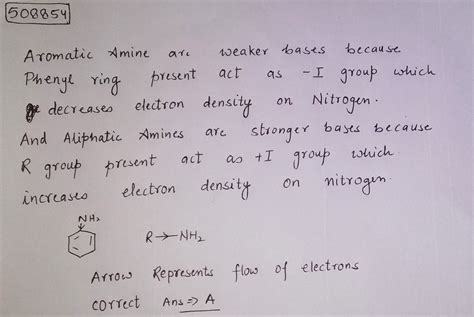 508854
Aromatic Amine are weaker bases because
Phenyl ring present act as -I group which
decreases electron density on Nitrogen.
And Aliphatic Amines are stronger bases because
R group present act as +I group which
increases electron density on nitrogen.
NH₂
R→NH₂
Arrow Represents flow of electrons
correct Ans ⇒ A